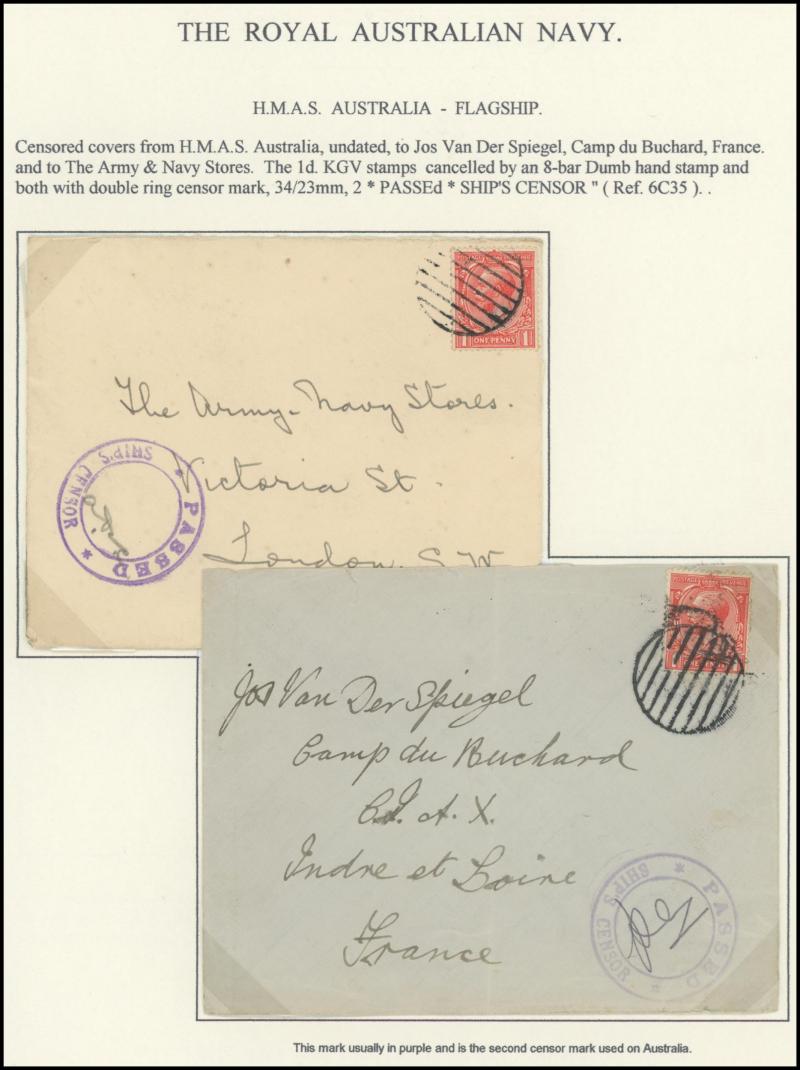 THE ROYAL AUSTRALIAN NAVY.
H.M.A.S. AUSTRALIA - FLAGSHIP.
Censored covers from H.M.A.S. Australia, undated, to Jos Van Der Spiegel, Camp du Buchard, France.
and to The Army & Navy Stores. The 1d. KGV stamps cancelled by an 8-bar Dumb hand stamp and
both with double ring censor mark, 34/23mm, 2 * PASSEd * SHIP'S CENSOR " ( Ref. 6C35 ). .
ONE PENNY
The Army - Navy Stores.
Victoria St.
London. S.W.
* PASSED * SHIP'S CENSOR
Jos Van Der Spiegel
Camp du Buchard
A. X.
Indre et Loire
France
* PASSED * SHIP'S CENSOR
This mark usually in purple and is the second censor mark used on Australia.